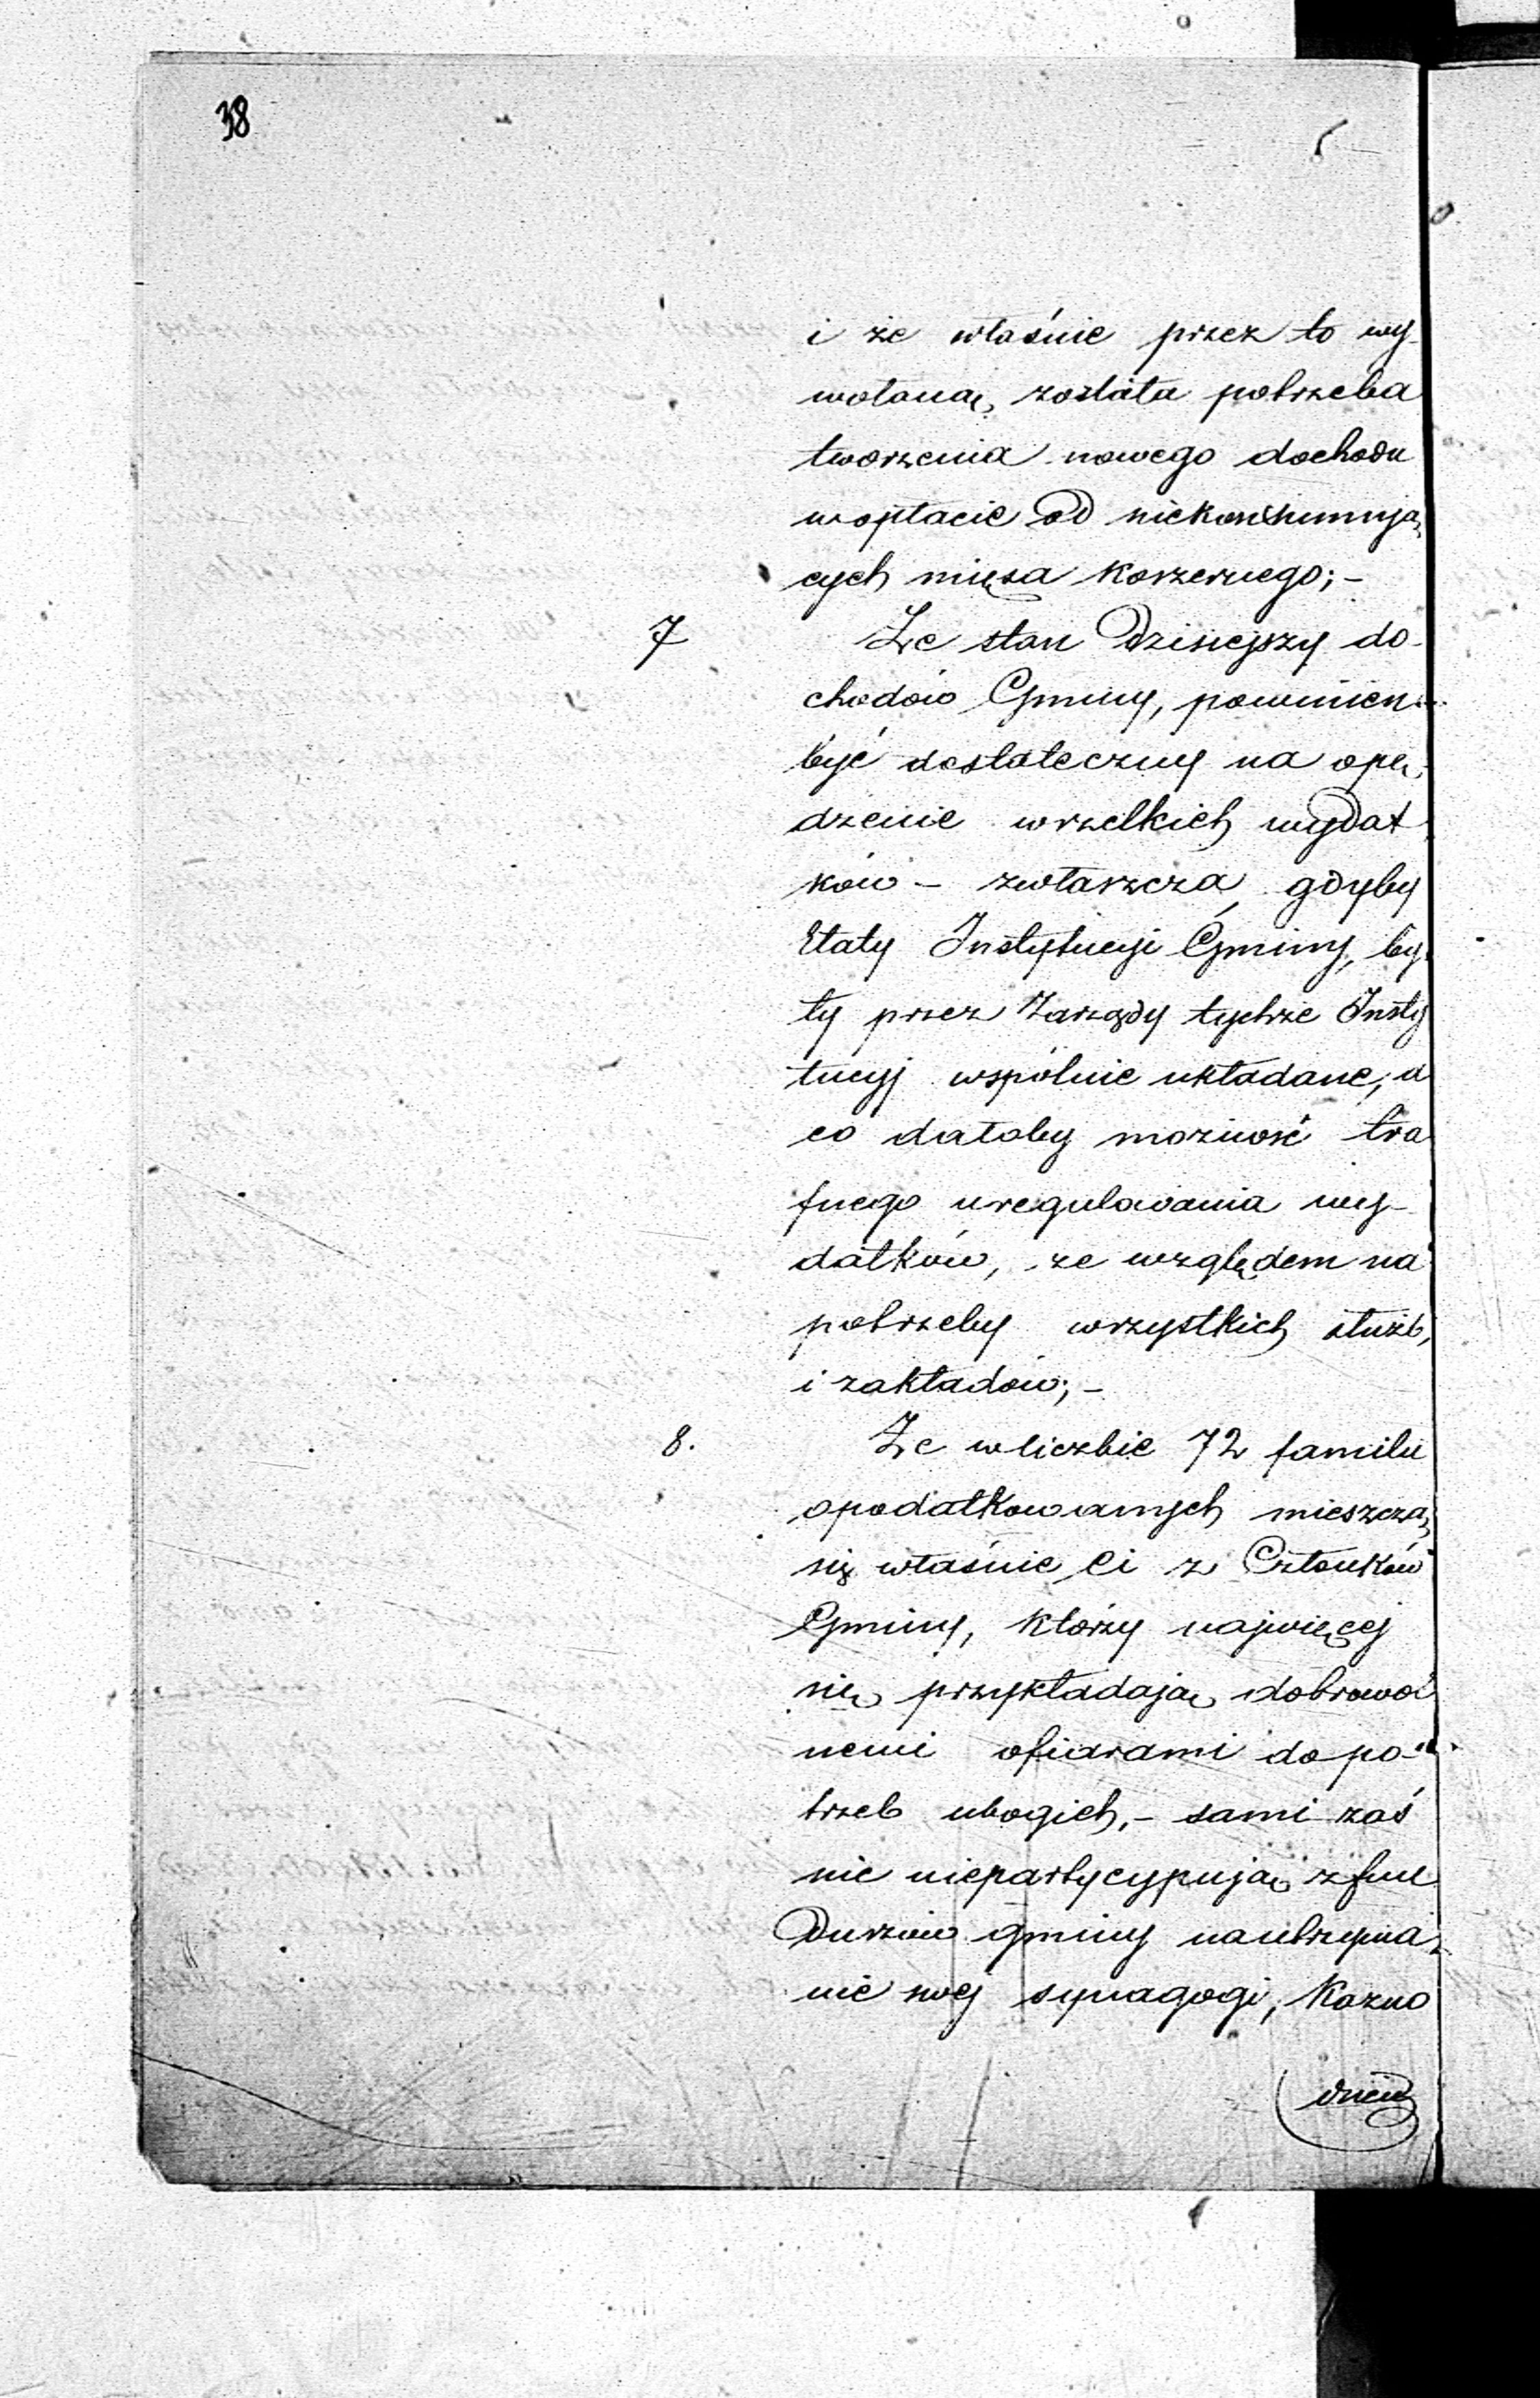 38
i że właśnie przez to wy-
wołaną została potrzeba
tworzenia nowego dochodu
w opłacie od niekonsumują
cych mięsa koszernego; -
7 Że stan dzisiejszy do-
chodów Gminy, powinien
być dostateczny na opę-
dzenie wszelkich wydat
ków - zwłaszcza, gdyby
Etaty Instytucyi Gminy, by
ły przez Zarządy tychże Insty
tucyj wspólnie układane, a
co dałoby możność tra
fnego uregulowania wy-
datków, ze względem na
potrzeby wszystkich służb,
i zakładów; -
8. Że w liczbie 72 familii
opodatkowanych mieszczą
się właśnie Ci z Członków
Gminy, którzy najwięcej
się przykładają dobrowol
nemi ofiarami do po-
trzeb ubogich, - sami zaś
nic niepartycypują z fun
duszów gminy na utrzyma-
nie swej synagogi, Kazno
dziei